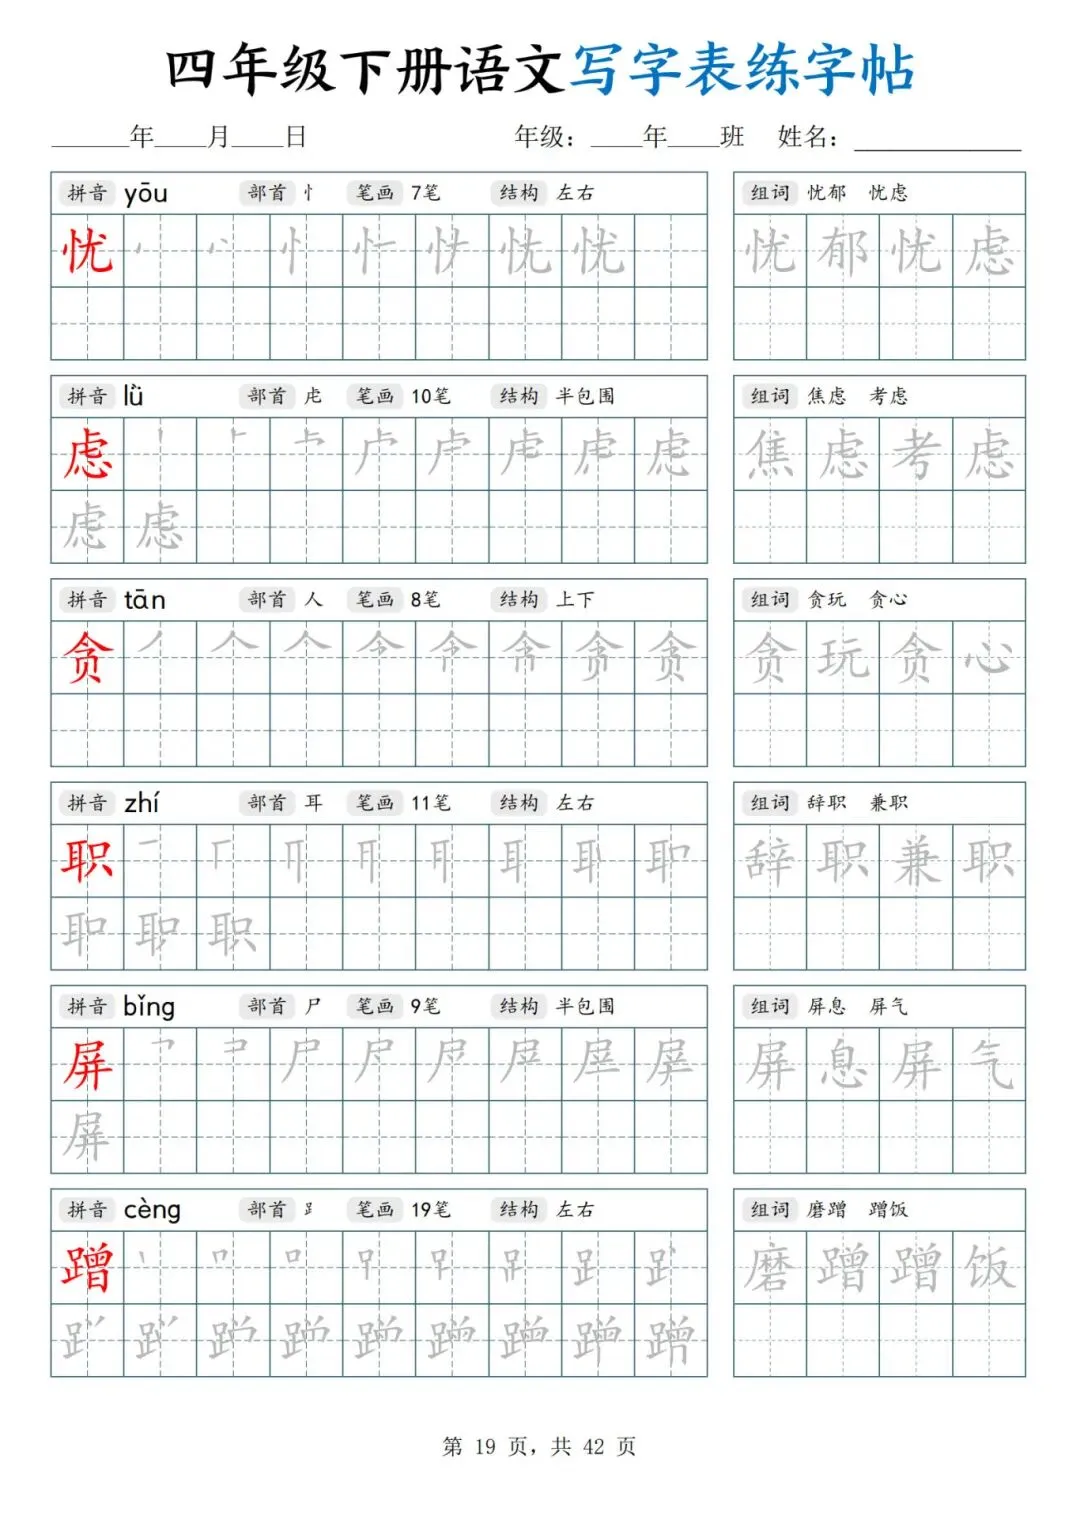 四年级下册语文写字表练字帖
____年____月____日 年级：____年____班 姓名：____________
拼音 yōu 部首 忄 笔画 7笔 结构 左右
组词 忧郁 忧虑
忧
忧 忧
忧 郁 忧 虑
拼音 lǜ 部首 虍 笔画 10笔 结构 半包围
组词 焦虑 考虑
虑
焦 虑 考 虑
虑 虑
拼音 tān 部首 人 笔画 8笔 结构 上下
组词 贪玩 贪心
贪
贪 玩 贪 心
拼音 zhí 部首 耳 笔画 11笔 结构 左右
组词 辞职 兼职
职
辞 职 兼 职
职
拼音 bǐng 部首 尸 笔画 9笔 结构 半包围
组词 屏息 屏气
屏
屏 息 屏 气
屏
拼音 cèng 部首 𧾷 笔画 19笔 结构 左右
组词 磨蹭 蹭饭
蹭
磨 蹭 蹭 饭
第 19 页，共 42 页